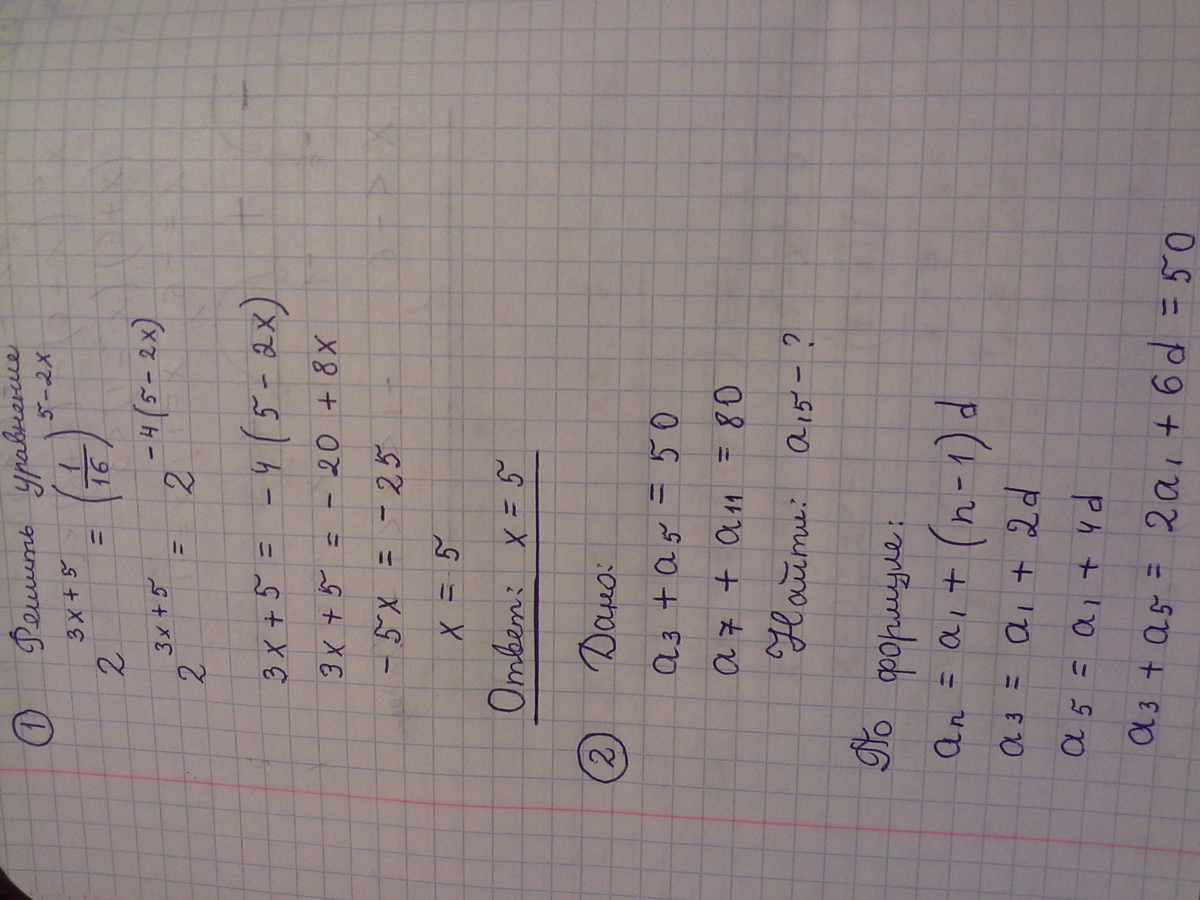 ① Решить уравнение
2^(3x+5) = (1/16)^(5-2x)
2^(3x+5) = 2^(-4(5-2x))
3x+5 = -4(5-2x)
3x+5 = -20+8x
-5x = -25
x = 5
Ответ: x = 5
② Дано:
a₃ + a₅ = 50
a₇ + a₁₁ = 80
Найти: a₁₅ - ?
По формуле:
aₙ = a₁ + (n-1)d
a₃ = a₁ + 2d
a₅ = a₁ + 4d
a₃ + a₅ = 2a₁ + 6d = 50